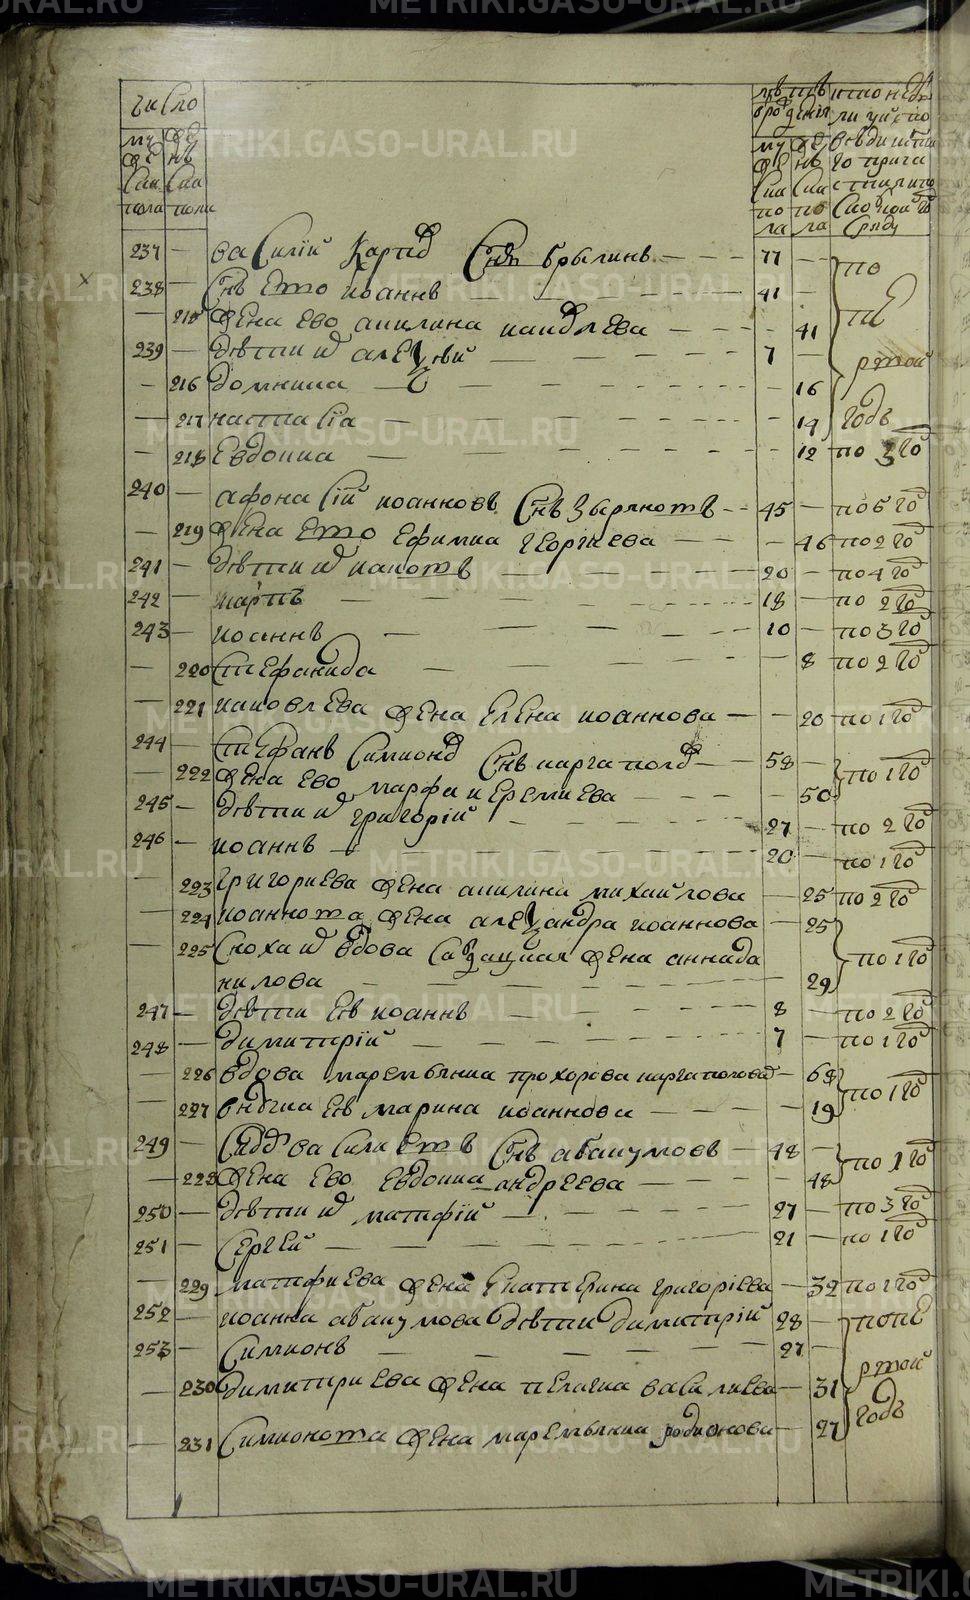 METRIKI.GASO-URAL.RU
число
му же
же нъ
ска ска
пола пола
лѣтъ
рожденія
му же
же нъ
ска ска
по по
ла ла
237 — василій карпов снъ брылинъ — 77 — по
238 — снъ ево иоаннъ — 41 — пе
— 215 жена ево акилина иаковлева — 41
239 — дѣти их алеѯѣй — 7 — ртой
— 216 домника — 16
— 217 настасіа — 14 годъ
— 218 евдокиа — 12 по 3 го
240 — афонасій иоанновъ снъ зыряновъ — 45 — по 6 го
— 219 жена ево ефимиа георгиева — 46 по 2 го
241 — дѣти их иаковъ — 20 — по 4 го
242 — карпъ — 18 — по 2 го
243 — иоаннъ — 10 — по 3 го
— 220 стефанида — 8 по 2 го
— 221 иаковлева жена елена иоаннова — 20 по 1 го
244 — стефанъ симионов снъ каргапол — 58 — по 1 го
— 222 жена ево марфа иеремиева — 50
245 — дѣти их григорій — 27 — по 2 го
246 — иоаннъ — 20 — по 1 го
— 223 григориева жена акилина михайлова — 25 по 2 го
— 224 иоаннова жена алеѯандра иоаннова — 25
— 225 сноха их вдова жена анна да — по 1 го
нилова — 29
247 — дѣти ея иоаннъ — 8 — по 2 го
248 — димитрій — 7 — по 1 го
— 226 вдова маремьяниа прохорова каргаполова — 63 по 1 го
— 227 внучка ея марина иоаннова — 19
249 — василиевъ снъ абакумовъ — 48 — по 1 го
— 228 жена ево евдокиа андреева — 48
250 — дѣти их матфій — 27 — по 3 го
251 — сергей — 21 — по 1 го
— 229 матфиева жена екатерина григоріева — 32 по 1 го
252 — иоанна абакумова дѣти димитрій — 28 — попе
253 — симионъ — 27 — ртой
— 230 димитриева жена пелагиа василиева — 31 годъ
— 231 симионова жена маремьяниа родионова — 27